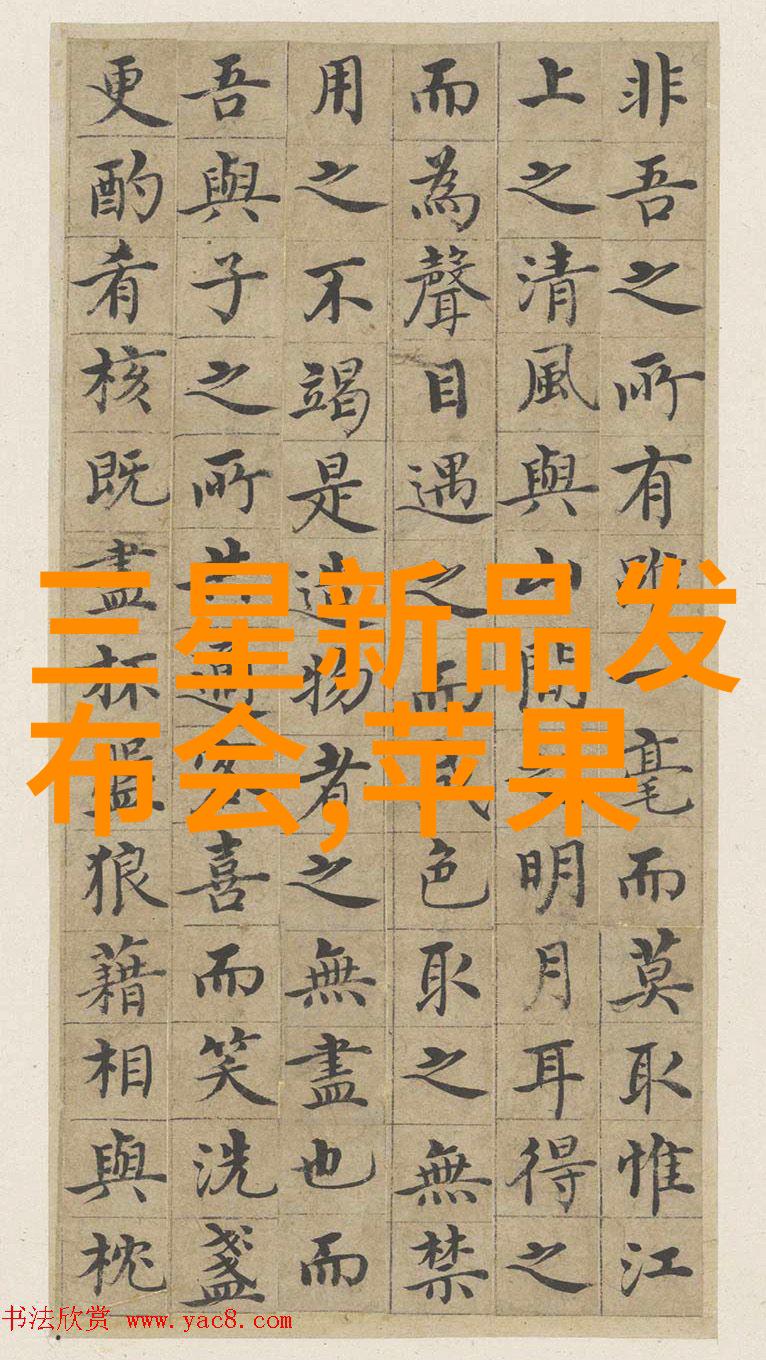 非吾之所有一毫而莫取惟江
上之清風與山間之明月耳得之
而為聲目遇之而成色取之無禁
用之不竭是造物者之無盡也而
吾與子之所共適客喜而笑洗盞
更酌肴核既盡杯盤狼藉相與枕
三星新品发
布会,苹果
书法欣赏 www.yac8.com